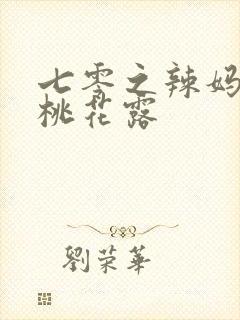 七零之辣妈
桃花露
劉荣華